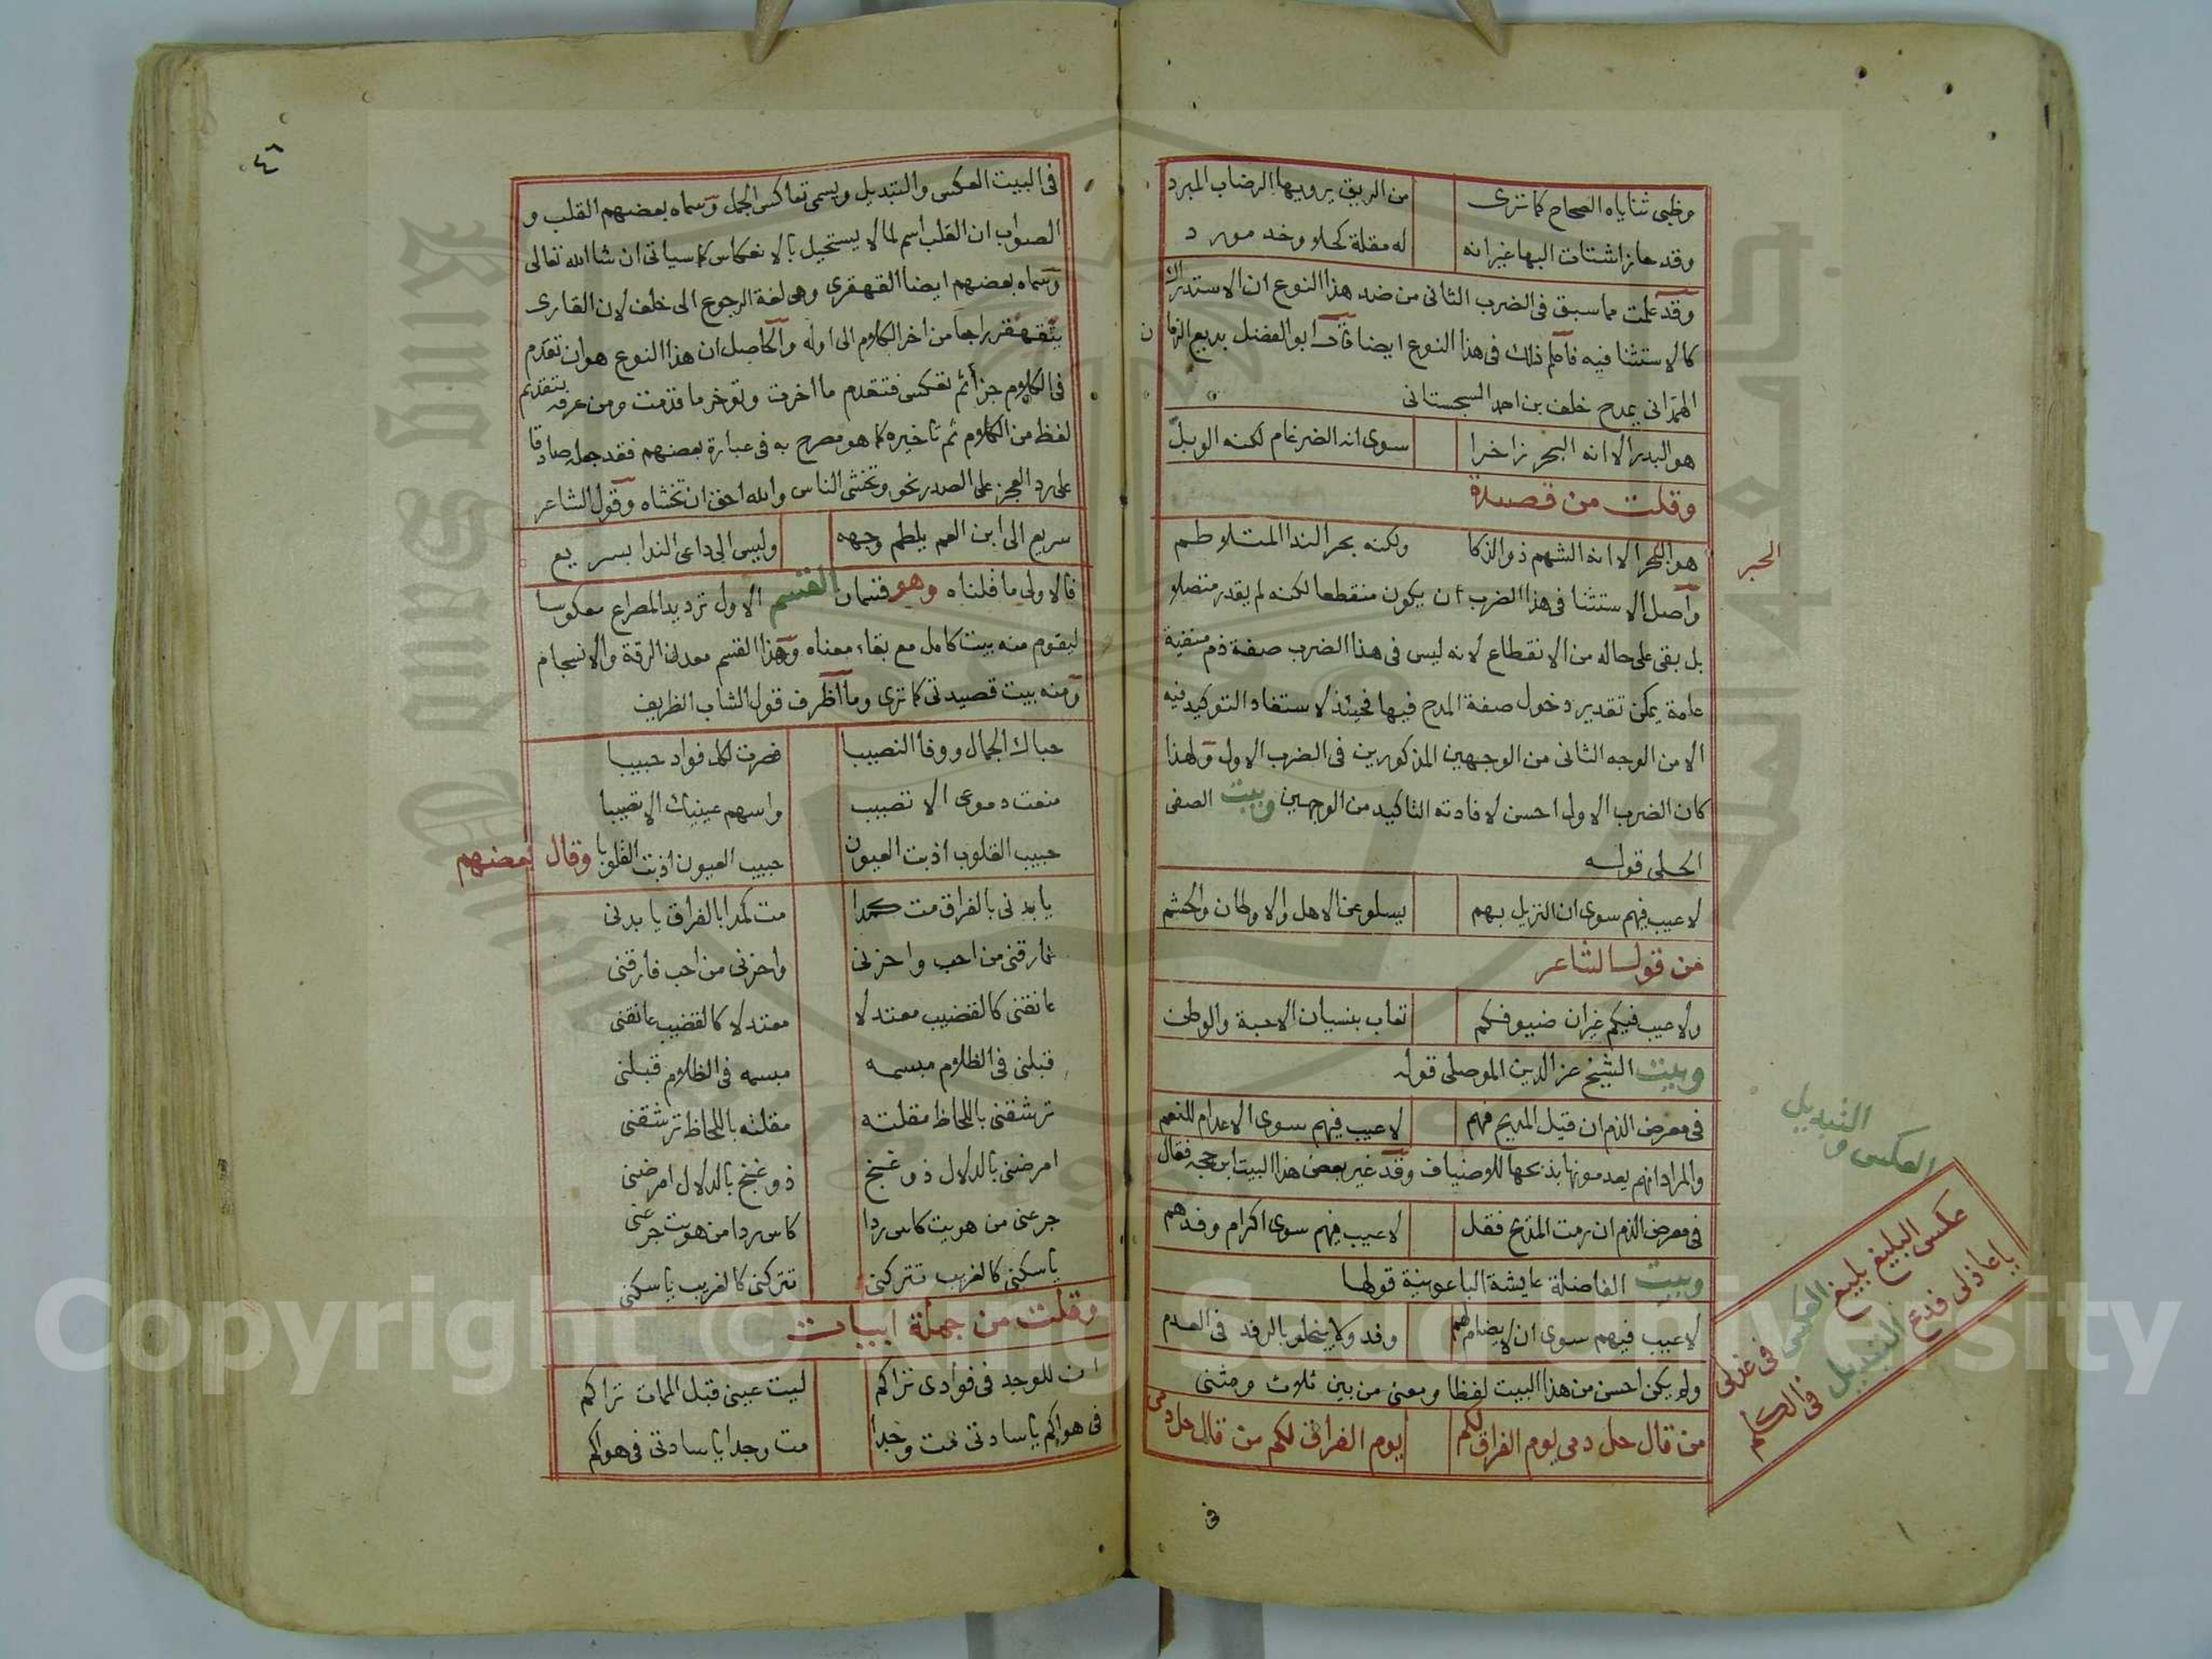 وظبي ثناياه الصحاح كما ترى من الريق يرويها الرضاب المبرد
وقد حاز اشتات البها غير انه له مقلة كحلا وخد مورد
وقد علمت مما سبق في الضرب الثاني من ضد هذا النوع ان الاستدراك
كالاستثنا فيه فاعلم ذلك في هذا النوع ايضا قال ابو الفضل بديع الزمان
الهمداني يمدح خلف بن احمد السجستاني
هو البدر الا انه البحر زاخرا سوى انه الضرغام لكنه الوبل
وقلت من قصيدة
هو البحر الا انه الشهم ذو الذكا ولكنه بحر الندا المتلاطم
الحبر
واصل الاستثنا في هذا الضرب ان يكون منقطعا لكنه لم يقدر متصلا
بل بقي على حاله من الانقطاع لانه ليس في هذا الضرب صفة ذم منفية
عامة يمكن تقدير دخول صفة المدح فيها فحينئذ لا ستفاد التوكيد فيه
الا من الوجه الثاني من الوجهين المذكورين في الضرب الاول ولهذا
كان الضرب الاول احسن لافادته التاكيد من الوجهين وبيت الصفي
الحلي قوله
لا عيب فيهم سوى ان النزيل بهم يسلو عن الاهل والاوطان والحشم
من قول الشاعر
ولا عيب فيكم غير ان ضيوفكم تعاب بنسيان الاحبة والوطن
وبيت الشيخ عز الدين الموصلي قوله
في معرض الذم ان قيل المديح فهم لا عيب فيهم سوى الاعدام للنعم
والمراد انهم يعدمونها بذبحها للاضياف وقد غير بعض هذا البيت ابن حجه فقال
في معرض الذم ان رمت المديح فقل لا عيب فيهم سوى اكرام وفدهم
وبيت الفاضلة عايشة الباعونية قولها
لا عيب فيهم سوى ان لا يضام لهم وفد ولا يبخلو بالرفد في العدم
ولم يكن احسن من هذا البيت لفظا ومعنى من بين ثلاث ومثنى
من قال حل دمي يوم الفراق لكم يوم الفراق لكم من قال حل دمي
العكس والتبديل
عكس البليغ بليغ العكس في غزلي
يا عاذلي فدع التبديل في الكلم
في
٤٦
في البيت العكس والتبديل ويسمى تعاكس الجمل وسماه بعضهم القلب و
الصواب ان القلب اسم لما لا يستحيل بالانعكاس كما سياتي ان شا الله تعالى
وسماه بعضهم ايضا القهقرى وهي لغة الرجوع الى خلف لان القارى
يتقهقر راجعا من اخر الكلام الى اوله والحاصل ان هذا النوع هو ان تقدم
في الكلام جزأ ثم تعكس فتقدم ما اخرت وتوخر ما قدمت ومن عرفه بتقديم
لفظ من الكلام ثم تاخيره كما هو مصرح به في عبارة بعضهم فقد جعله صادقا
على رد العجز على الصدر نحو وتخشى الناس والله احق ان تخشاه وقول الشاعر
سريع الى ابن العم يلطم وجهه وليس الى داعي الندا بسريع
فالاولى ما قلناه وهو قسمان القسم الاول ترديد المصراع معكوسا
ليقوم منه بيت كامل مع بقاء معناه وهذا القسم معدن الرقة والانسجام
ومنه بيت قصيدتي كما ترى وما اظرف قول الشاب الظريف
حباك الجمال ووفا النصيبا فصرت لكل فواد حبيبا
منعت دموعي الا تصيب واسهم عينيك الا تصيبا
حبيب القلوب اذبت العيون حبيب العيون اذبت القلوبا وقال بعضهم
يا بدني بالفراق مت كمدا مت كمدا بالفراق يا بدني
فارقني من احب واحزني واحزني من احب فارقني
عانقني كالقضيب معتدلا معتدلا كالقضيب عانقني
قبلني في الظلام مبسمه مبسمه في الظلام قبلني
ترشقني باللحاظ مقلته مقلته باللحاظ ترشقني
امرضني بالدلال ذو غنج ذو غنج بالدلال امرضني
جرعني من هويت كاس ردا كاس ردا من هويت جرعني
يا سكني كالغريب تتركني تتركني كالغريب يا سكني
وقلت من جملة ابيات
ان للوجد في فوادي تراكم ليت عيني قبل الممات تراكم
في هواكم يا سادتي مت وجدا مت وجدا يا سادتي في هواكم
Copyright © King Saud University